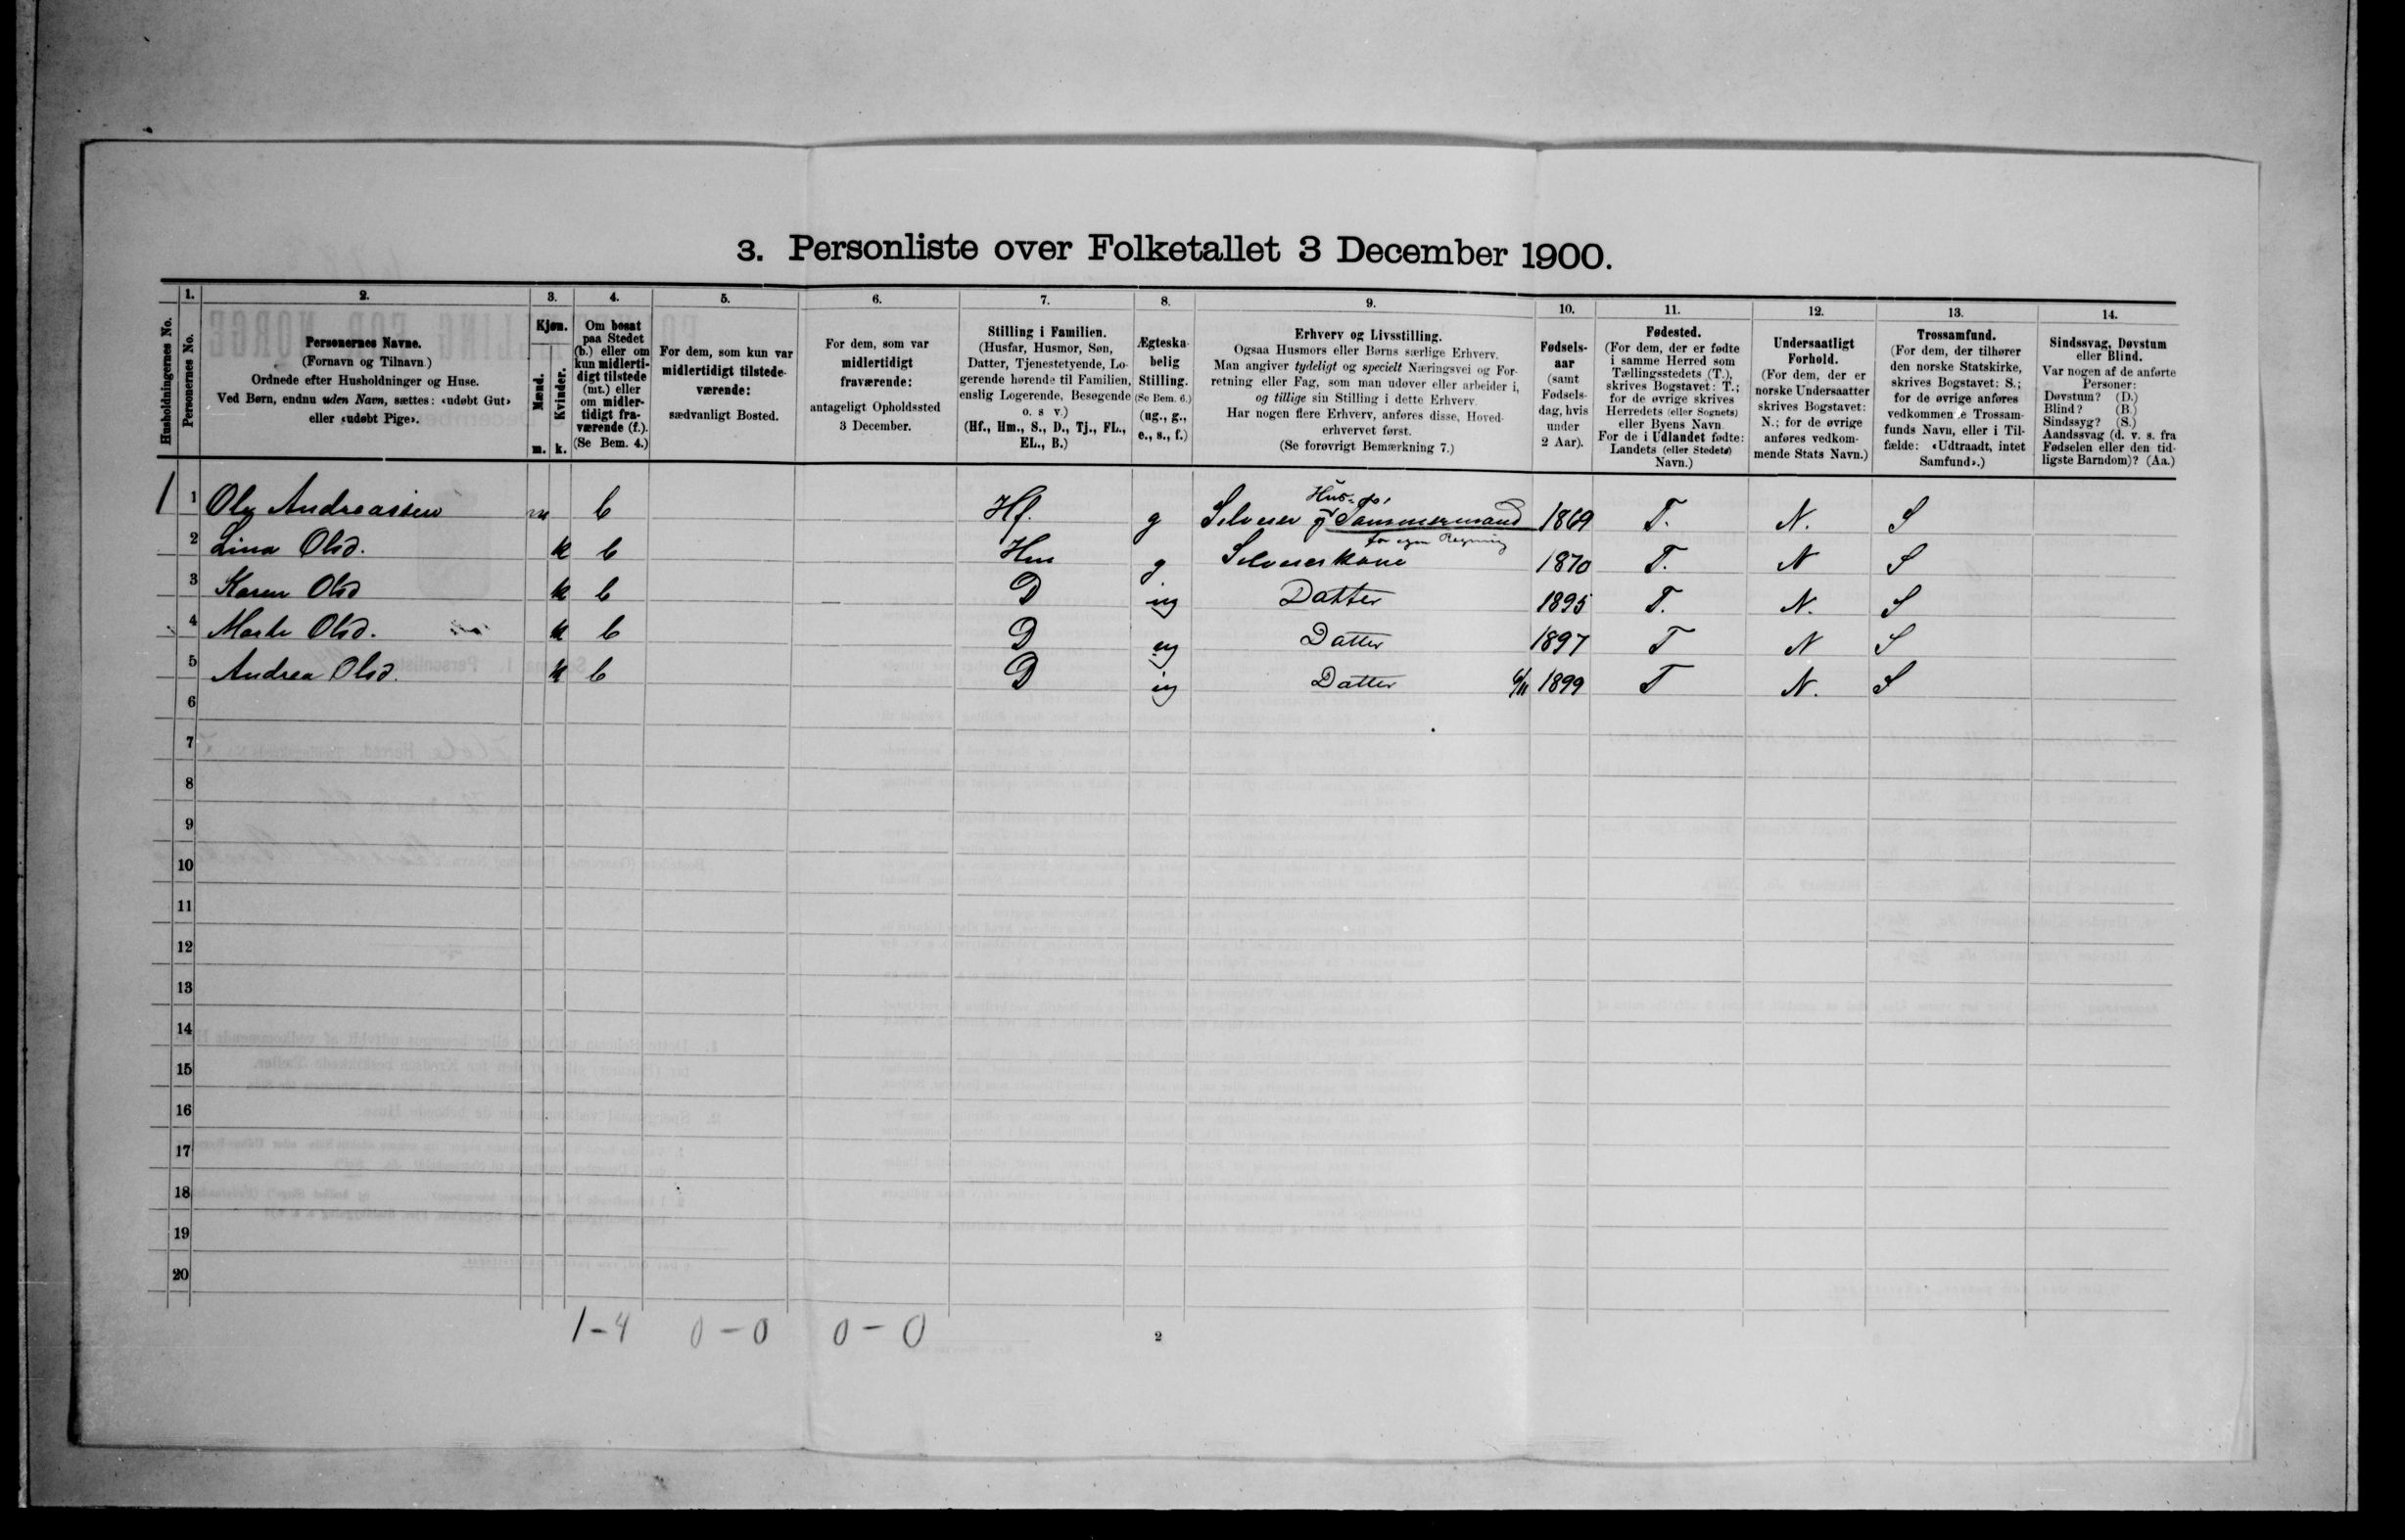 3. Personliste over Folketallet 3 December 1900.
1. 2. 3. 4. 5. 6. 7. 8. 9. 10. 11. 12. 13. 14.
Husholdningernes No.
Personernes No.
Personernes Navne.
(Fornavn og Tilnavn)
Ordnede efter Husholdninger og Huse.
Ved Børn, endnu uden Navn, sættes: «udøbt Gut»
eller «udøbt Pige».
Kjøn.
Mænd.
Kvinder.
m. k.
Om bosat
paa Stedet
(b.) eller om
kun midlerti-
digt tilstede
(mt.) eller
om midler-
tidigt fra-
værende (f.).
(Se Bem. 4.)
For dem, som kun var
midlertidigt tilstede-
værende:
sædvanligt Bosted.
For dem, som var
midlertidigt
fraværende:
antageligt Opholdssted
3 December.
Stilling i Familien.
(Husfar, Husmor, Søn,
Datter, Tjenestetyende, Lo-
gerende hørende til Familien,
enslig Logerende, Besøgende
o. s v.)
(Hf., Hm., S., D., Tj., FL.,
EL., B.)
Ægteska-
belig
Stilling.
(Se Bem. 6.)
(ug., g.,
e., s., f.)
Erhverv og Livsstilling.
Ogsaa Husmors eller Børns særlige Erhverv.
Man angiver tydeligt og specielt Næringsvei og For-
retning eller Fag, som man udøver eller arbeider i,
og tillige sin Stilling i dette Erhverv.
Har nogen flere Erhverv, anføres disse, Hoved-
erhvervet først.
(Se forøvrigt Bemærkning 7.)
Fødsels-
aar
(samt
Fødsels-
dag, hvis
under
2 Aar).
Fødested.
(For dem, der er fødte
i samme Herred som
Tællingsstedets (T.),
skrives Bogstavet: T.;
for de øvrige skrives
Herredets (eller Sognets)
eller Byens Navn
For de i Udlandet fødte:
Landets (eller Stedets)
Navn.)
Undersaatligt
Forhold.
(For dem, der er
norske Undersaatter
skrives Bogstavet:
N.; for de øvrige
anføres vedkom-
mende Stats Navn.)
Trossamfund.
(For dem, der tilhører
den norske Statskirke,
skrives Bogstavet: S.;
for de øvrige anføres
vedkommen e Trossam-
funds Navn, eller i Til-
fælde: «Udtraadt, intet
Samfund».)
Sindssvag, Døvstum
eller Blind.
Var nogen af de anførte
Personer:
Døvstum? (D.)
Blind? (B.)
Sindssyg? (S.)
Aandssvag (d. v. s. fra
Fødselen eller den tid-
ligste Barndom)? (Aa.)
Hus- do.
1 1 Ole Andreassen m b Hf. g Selveier og Tømmermand 1869 T. N. S
for egen Regning
2 Lina Olsd. k b Hm g Selveierskone 1870 T. N S
3 Karen Olsd k b D ug Datter 1895 T. N. S
4 Marte Olsd. k b D ug Datter 1897 T N S
5 Andrea Olsd. k b D ug Datter 6/11 1899 T N. S
6
7
8
9
10
11
12
13
14
15
16
17
18
19
20
1-4 0-0 0-0
2